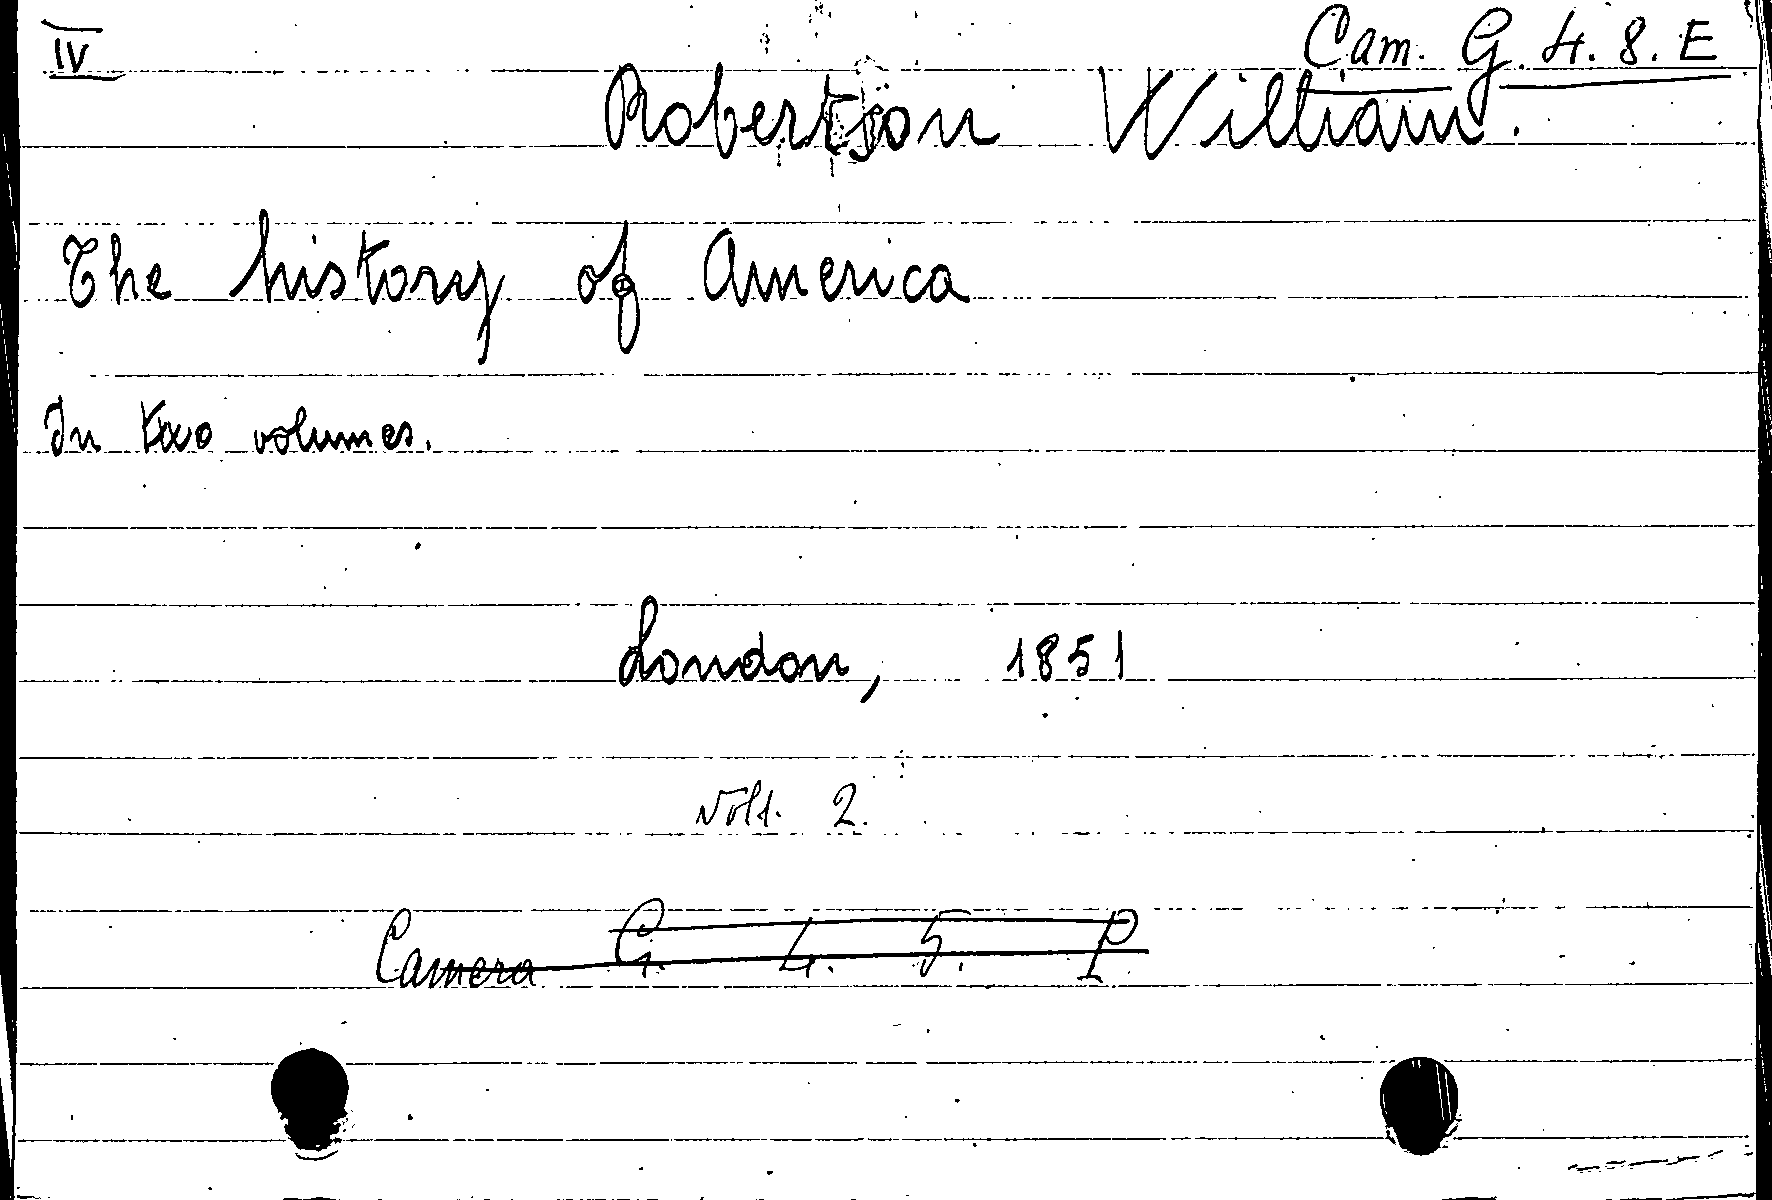 IV
Cam. G. 4. 8. E
Robertson William.
The history of America
In two volumes.
London, 1851
Voll. 2.
Camera G. 4. 5. P